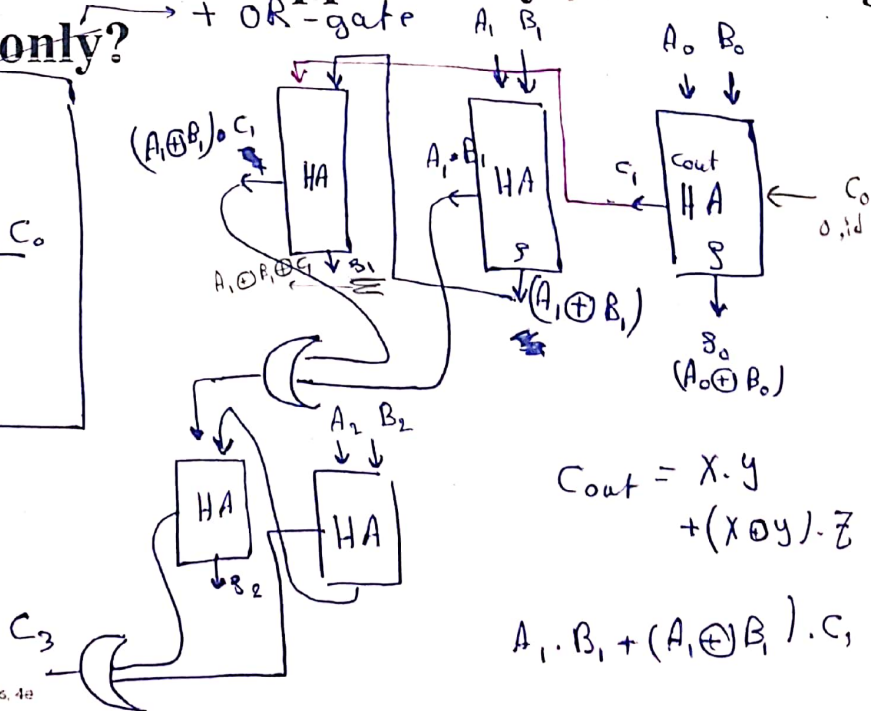 + OR-gate
only?
A₁ B₁
A₀ B₀
(A₁⊕B₁)·C₁
HA
A₁·B₁
HA
S
C₁
Cout
HA
S
C₀
C₀
A₁⊕B₁⊕C₁
S₁
(A₁⊕B₁)
S₀
(A₀⊕B₀)
A₂ B₂
HA
S₂
HA
Cout = X.y
+(X⊕y).Z
C₃
A₁.B₁+(A₁⊕B₁).C₁
s, 4e